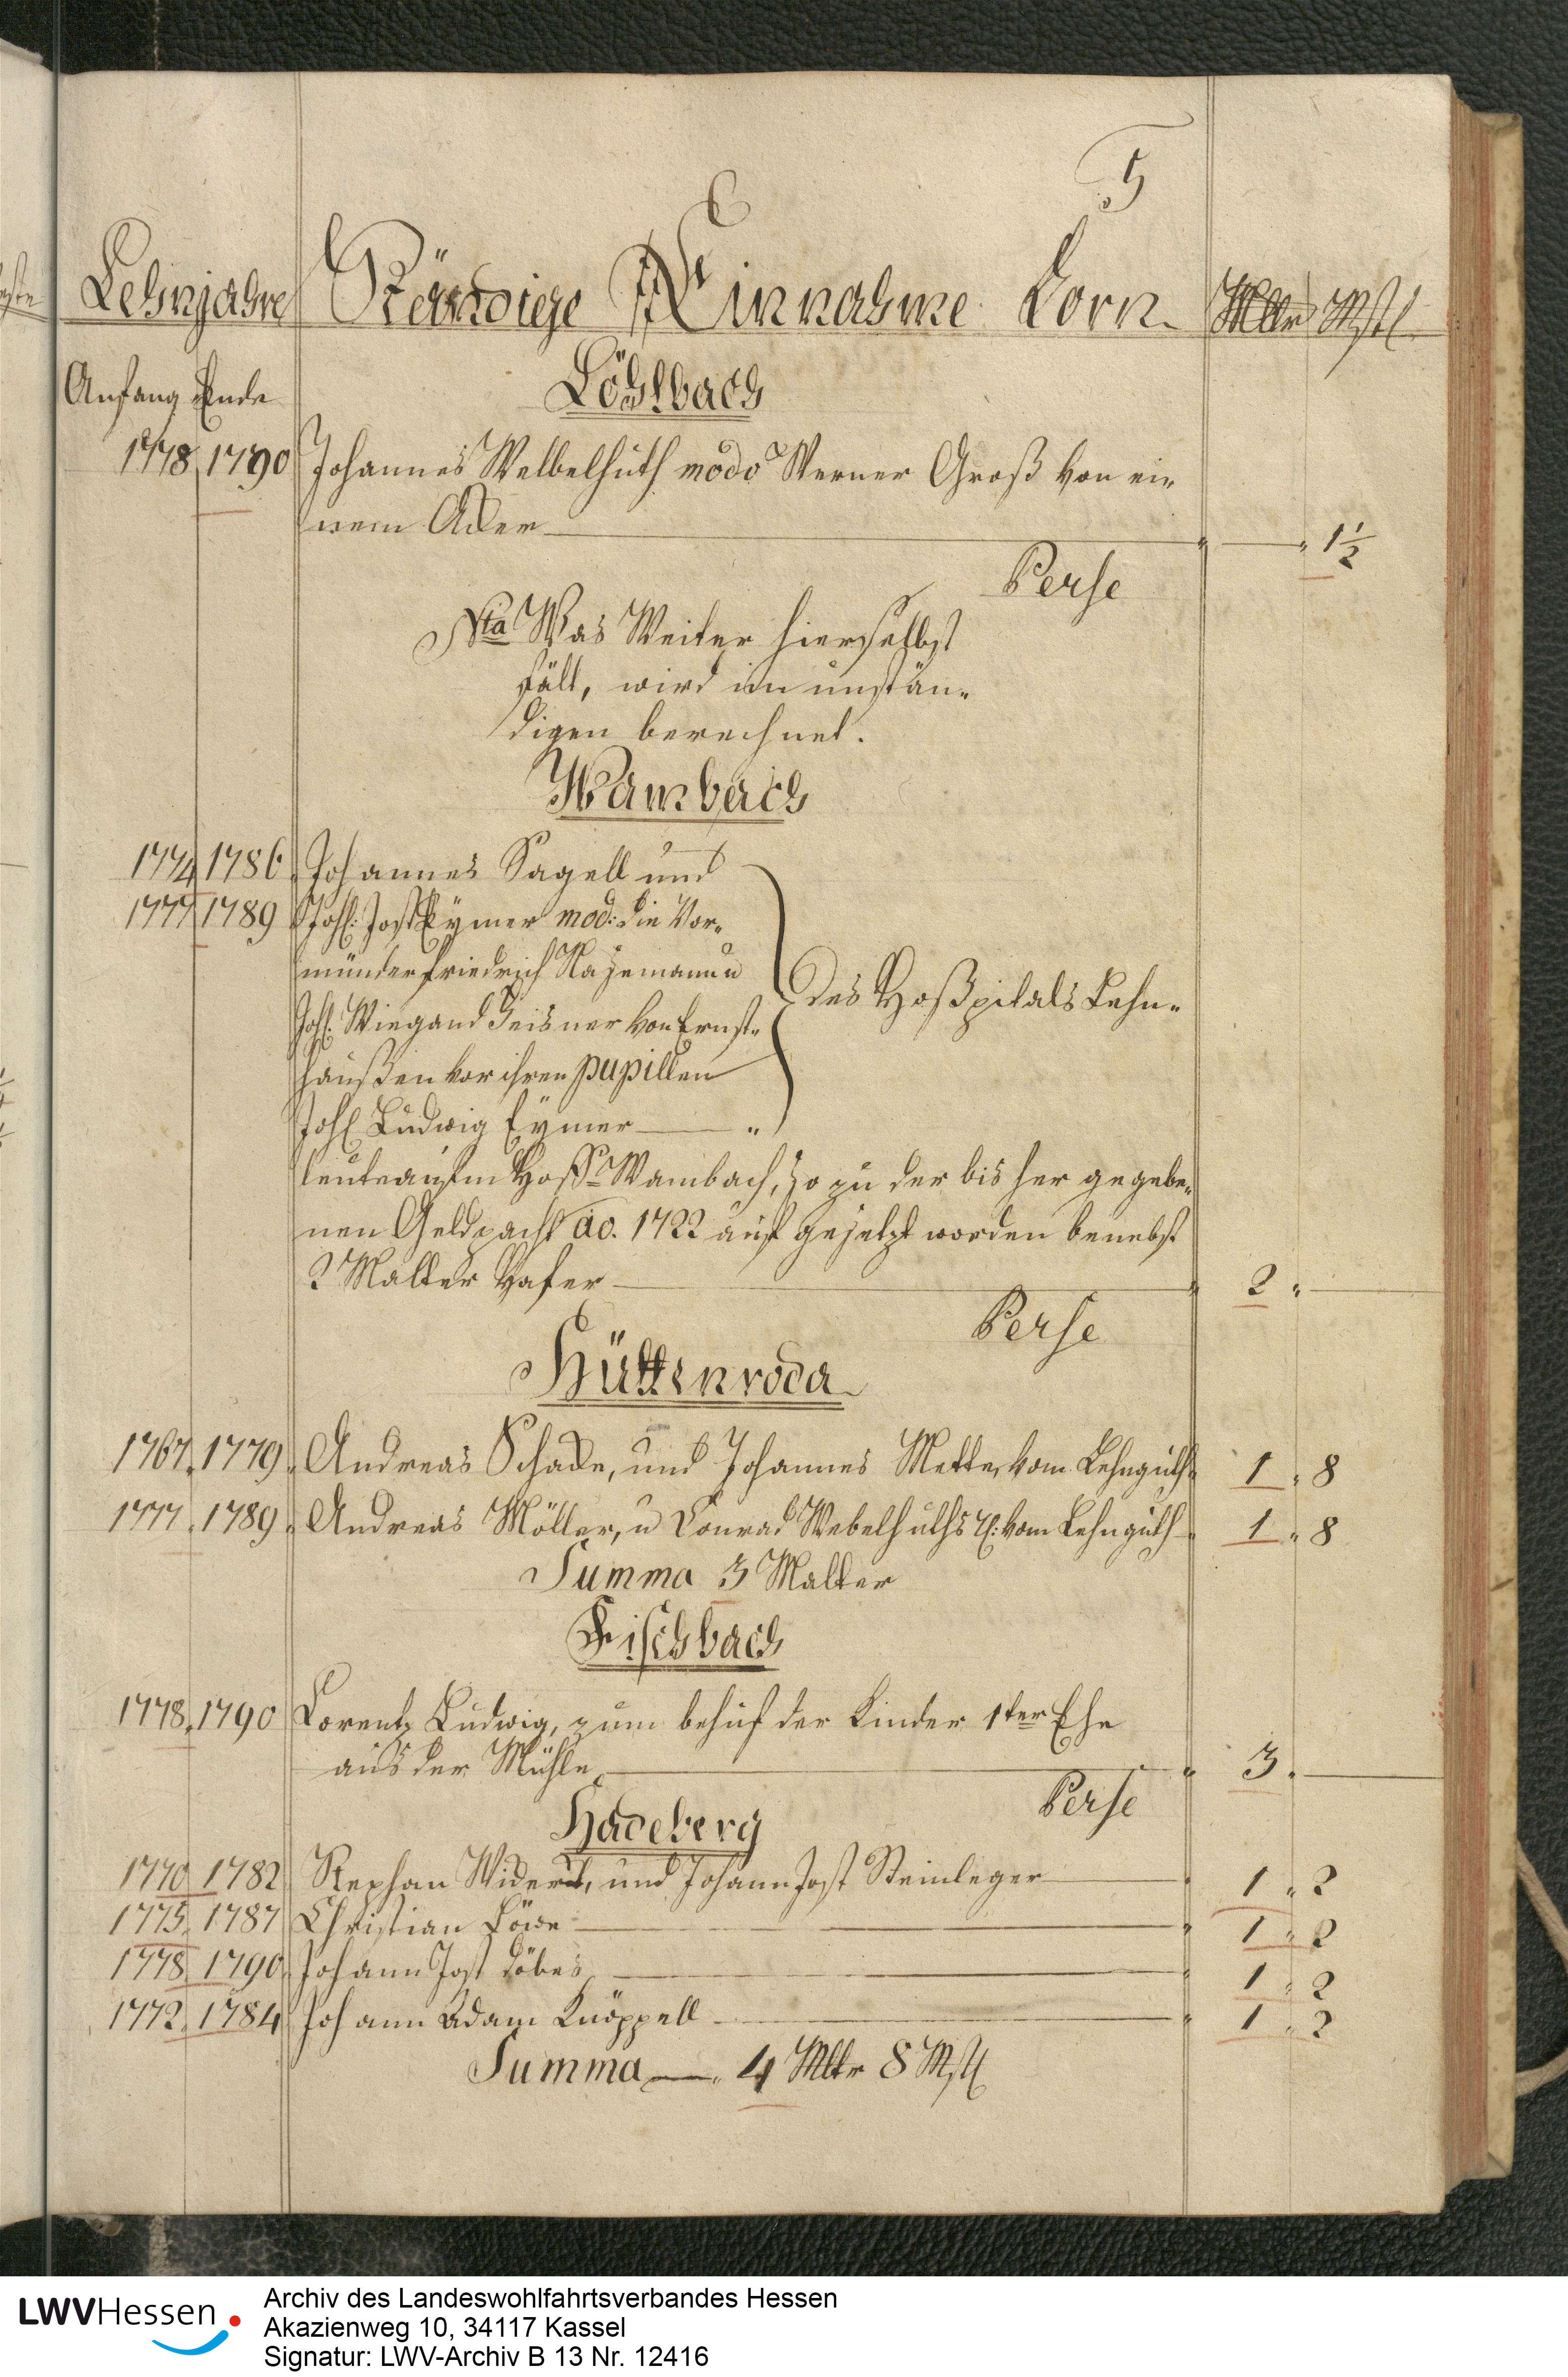 5
Lehnjahre Ständige Einnahme Korn Mltr Mstl
Anfang Ende Löhlbach
1778 1790 Johannes Welbelhuth modo Werner Groß von ei-
nem Acker 1 1/2
Perse
Nta Was Weiter hierselbst
fält, wird im unstän-
digen berechnet.
Wambach
1774 1786 Johannes Sagell und
1777 1789 Joh: Jost Eymer mod: die Vor-
münder Friedrich Nazemann u
Joh: Wiegand Geisner von Ernst-
haußen vor ihren pupillen
Joh Ludwig Eymer
des Hoßpitals Lehn-
leute aufm Hoff Wambach, so zu der bis her gegebe-
nen Geldpacht ao. 1722 auf gesetzt worden benebst
2 Malter Hafer 2
Perse
Hüttenroda
1767 1779 Andreas Schade, und Johannes Mette, vom Lehnguth 1 8
1777 1789 Andreas Möller, u Conrad Webelhuths E: vom Lehnguth 1 8
Summa 3 Malter
Fischbach
1778 1790 Lorentz Ludwig, zum behuf der Kinder 1ter Ehe
aus der Mühle 3
Perse
Haceberg
1770 1782 Stephan Widerdt, und Johann Jost Steinleger 1 2
1775 1787 Christian Löwe 1 2
1778 1790 Johann Jost Döbes 1 2
1772 1784 Johann Adam Knöppell 1 2
Summa 4 Mltr 8 Mstl
LWVHessen
Archiv des Landeswohlfahrtsverbandes Hessen
Akazienweg 10, 34117 Kassel
Signatur: LWV-Archiv B 13 Nr. 12416